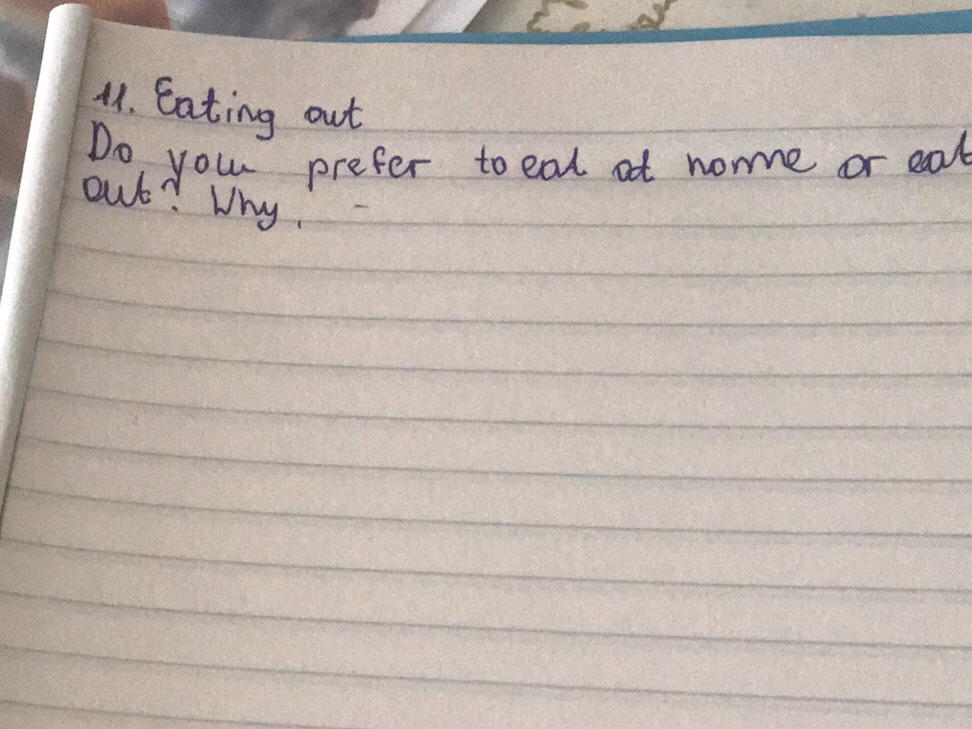 11. Eating out
Do you prefer to eat at home or eat
out? Why.